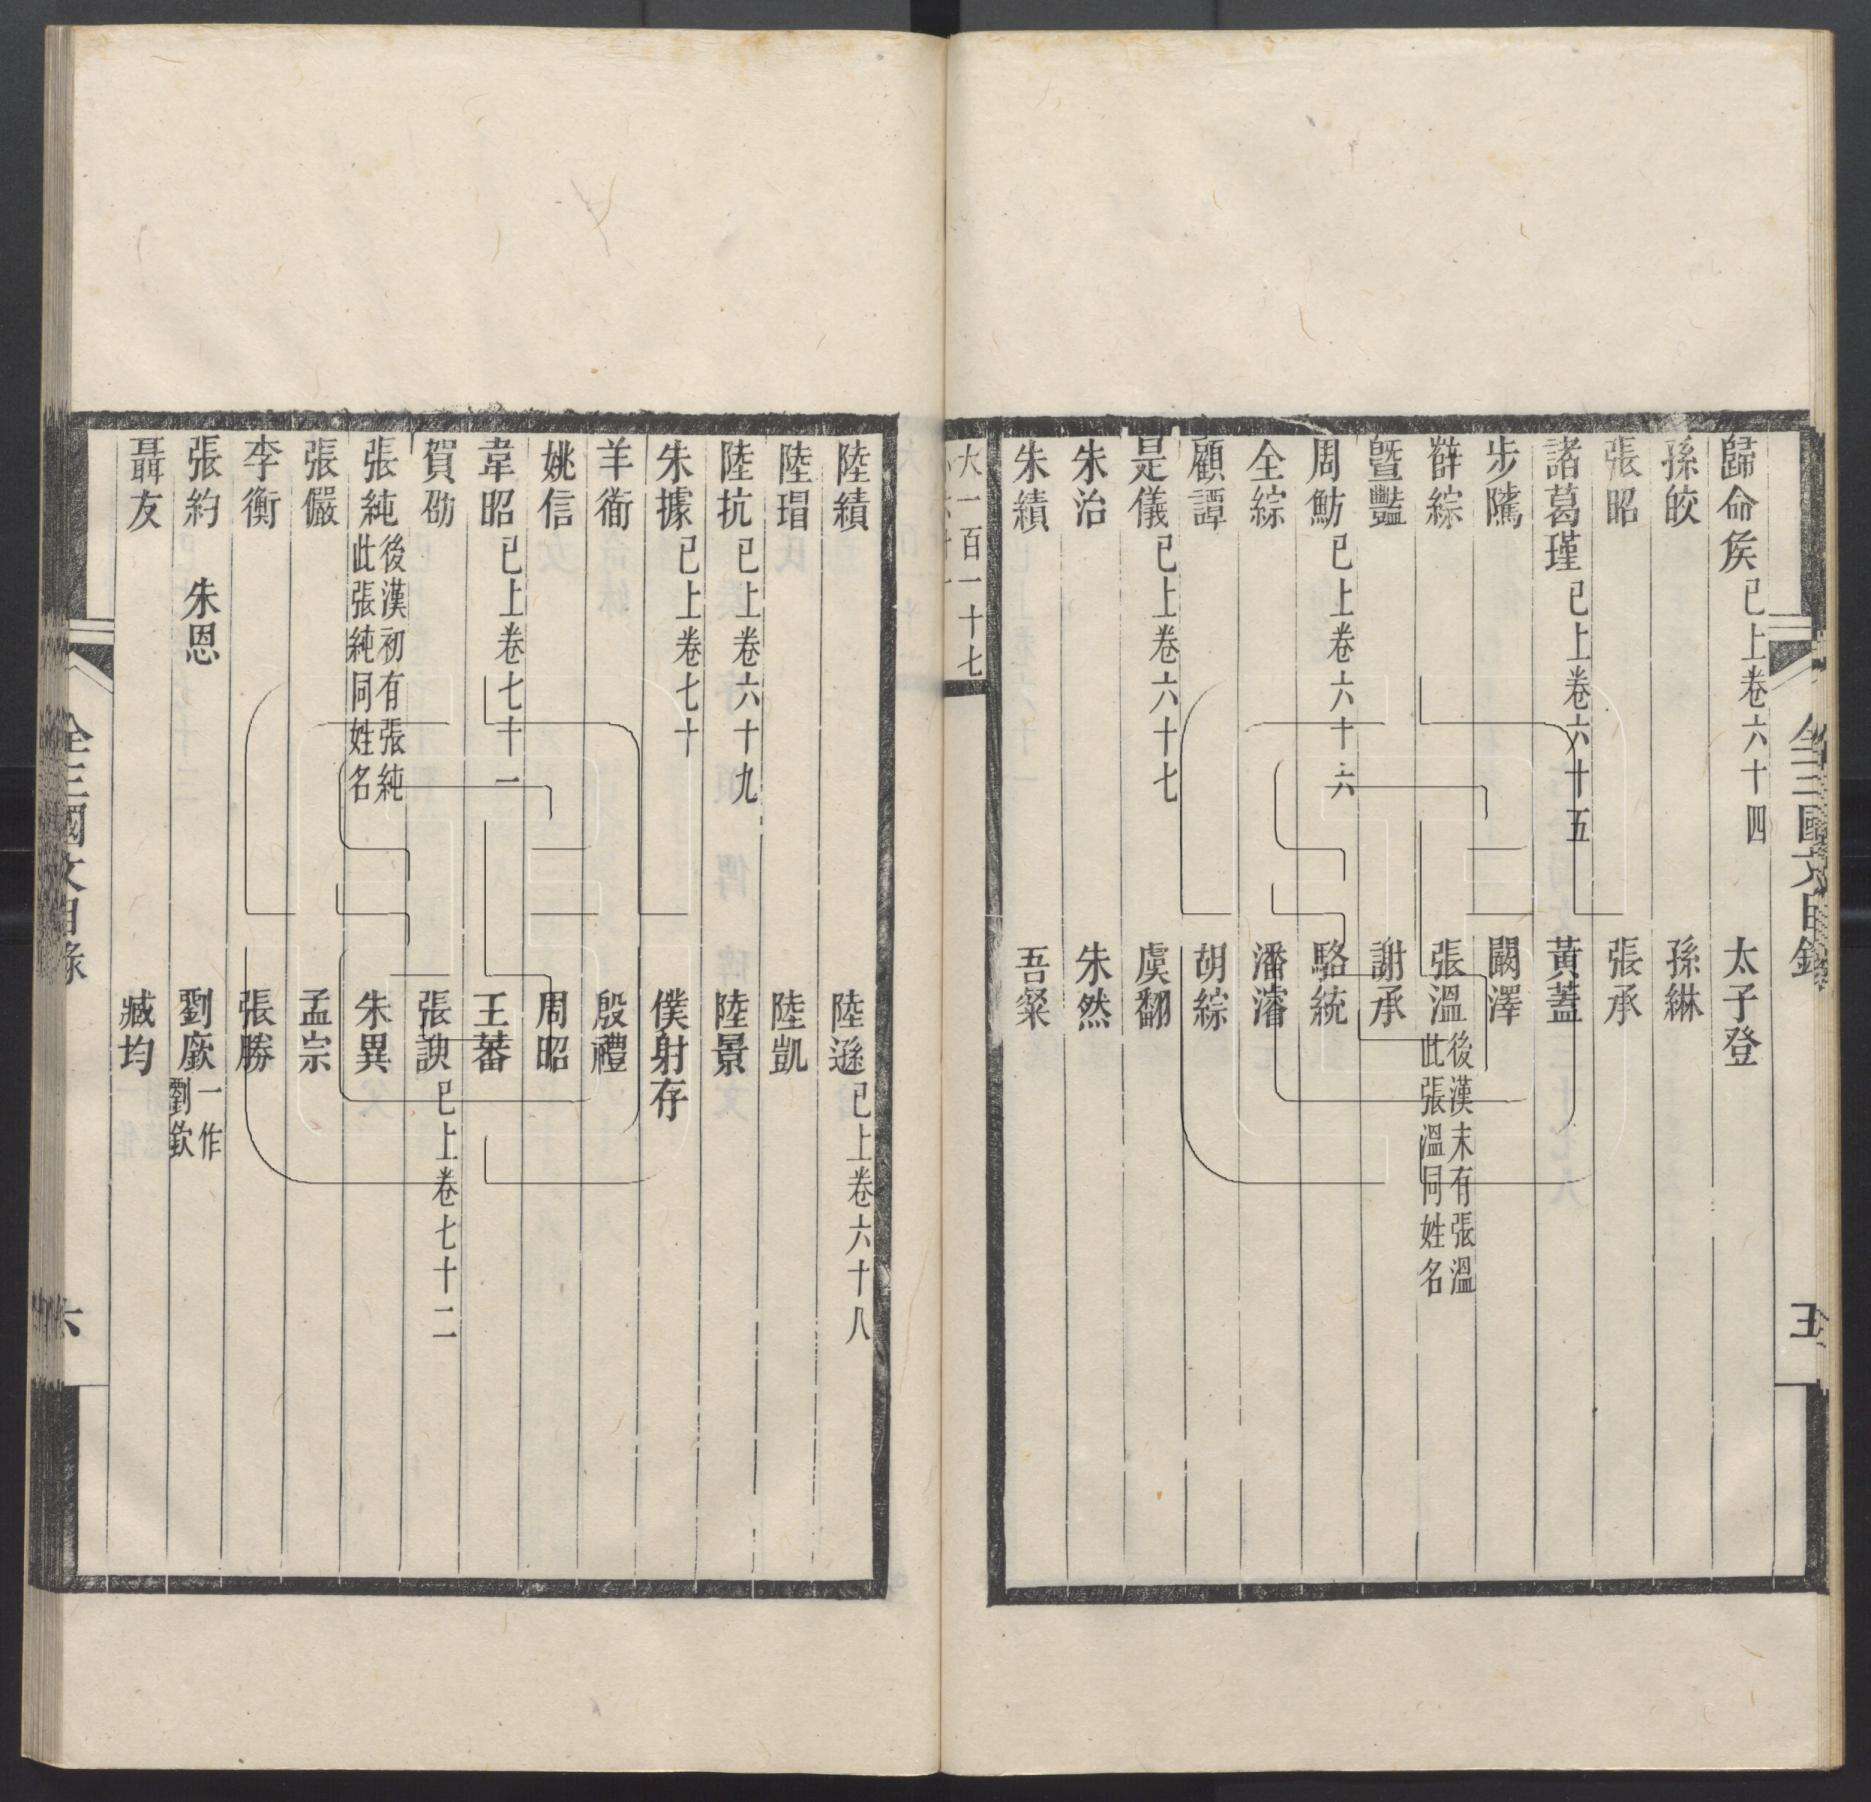 歸命矦已上卷六十四 太子登
孫皎 孫綝
張昭 張承
諸葛瑾已上卷六十五 黃蓋
步隲 闞澤
薛綜 張溫後漢末有張溫此張溫同姓名
暨豔 謝承
周魴已上卷六十六 駱統
全綜 潘濬
顧譚 胡綜
是儀已上卷六十七 虞翻
朱治 朱然
朱績 吾粲
大一百一十七
全三國文目錄 五
陸績 陸遜已上卷六十八
陸瑁 陸凱
陸抗已上卷六十九 陸景
朱據已上卷七十 僕射存
羊衜 殷禮
姚信 周昭
韋昭已上卷七十一 王蕃
賀劭 張諛已上卷七十二
張純後漢初有張純此張純同姓名 朱異
張儼 孟宗
李衡 張勝
張約 朱恩 劉廞一作劉欽
聶友 臧均
全三國文目錄 六